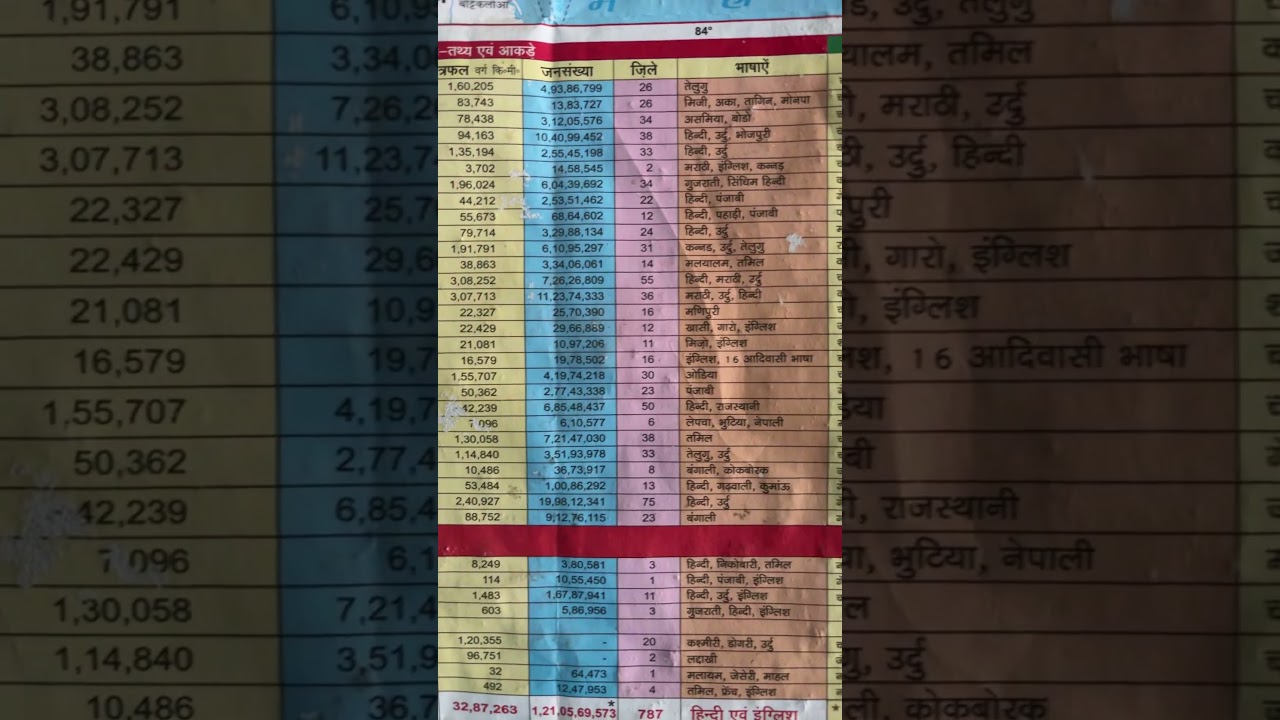 बाट्टकलोआ
84°
-तथ्य एवं आकड़े
त्रफल वर्ग कि॰मी॰ जनसंख्या ज़िले भाषाऐं
1,60,205 4,93,86,799 26 तेलुगु
83,743 13,83,727 26 मिजी, अका, तागिन, मोनपा
78,438 3,12,05,576 34 असमिया, बोडो
94,163 10,40,99,452 38 हिन्दी, उर्दु, भोजपुरी
1,35,194 2,55,45,198 33 हिन्दी, उर्दु
3,702 14,58,545 2 मराठी, इंग्लिश, कन्नड़
1,96,024 6,04,39,692 34 गुजराती, सिंधिम हिन्दी
44,212 2,53,51,462 22 हिन्दी, पंजाबी
55,673 68,64,602 12 हिन्दी, पहाड़ी, पंजाबी
79,714 3,29,88,134 24 हिन्दी, उर्दु
1,91,791 6,10,95,297 31 कन्नड, उर्दु, तेलुगु
38,863 3,34,06,061 14 मलयालम, तमिल
3,08,252 7,26,26,809 55 हिन्दी, मराठी, उर्दु
3,07,713 11,23,74,333 36 मराठी, उर्दु, हिन्दी
22,327 25,70,390 16 मणिपुरी
22,429 29,66,889 12 खासी, गारो, इंग्लिश
21,081 10,97,206 11 मिज़ो, इंग्लिश
16,579 19,78,502 16 इंग्लिश, 16 आदिवासी भाषा
1,55,707 4,19,74,218 30 ओडिया
50,362 2,77,43,338 23 पंजाबी
42,239 6,85,48,437 50 हिन्दी, राजस्थानी
7,096 6,10,577 6 लेपचा, भुटिया, नेपाली
1,30,058 7,21,47,030 38 तमिल
1,14,840 3,51,93,978 33 तेलुगु, उर्दु
10,486 36,73,917 8 बंगाली, कोकबोरक
53,484 1,00,86,292 13 हिन्दी, गढ़वाली, कुमांऊ
2,40,927 19,98,12,341 75 हिन्दी, उर्दु
88,752 9,12,76,115 23 बंगाली
8,249 3,80,581 3 हिन्दी, निकोबारी, तमिल
114 10,55,450 1 हिन्दी, पंजाबी, इंग्लिश
1,483 1,67,87,941 11 हिन्दी, उर्दु, इंग्लिश
603 5,86,956 3 गुजराती, हिन्दी, इंग्लिश
1,20,355 - 20 कश्मीरी, डोगरी, उर्दु
96,751 - 2 लद्दाखी
32 64,473 1 मलायम, जेसेरी, माहल
492 12,47,953 4 तमिल, फ्रेंच, इंग्लिश
32,87,263 1,21,05,69,573* 787 हिन्दी एवं इंग्लिश